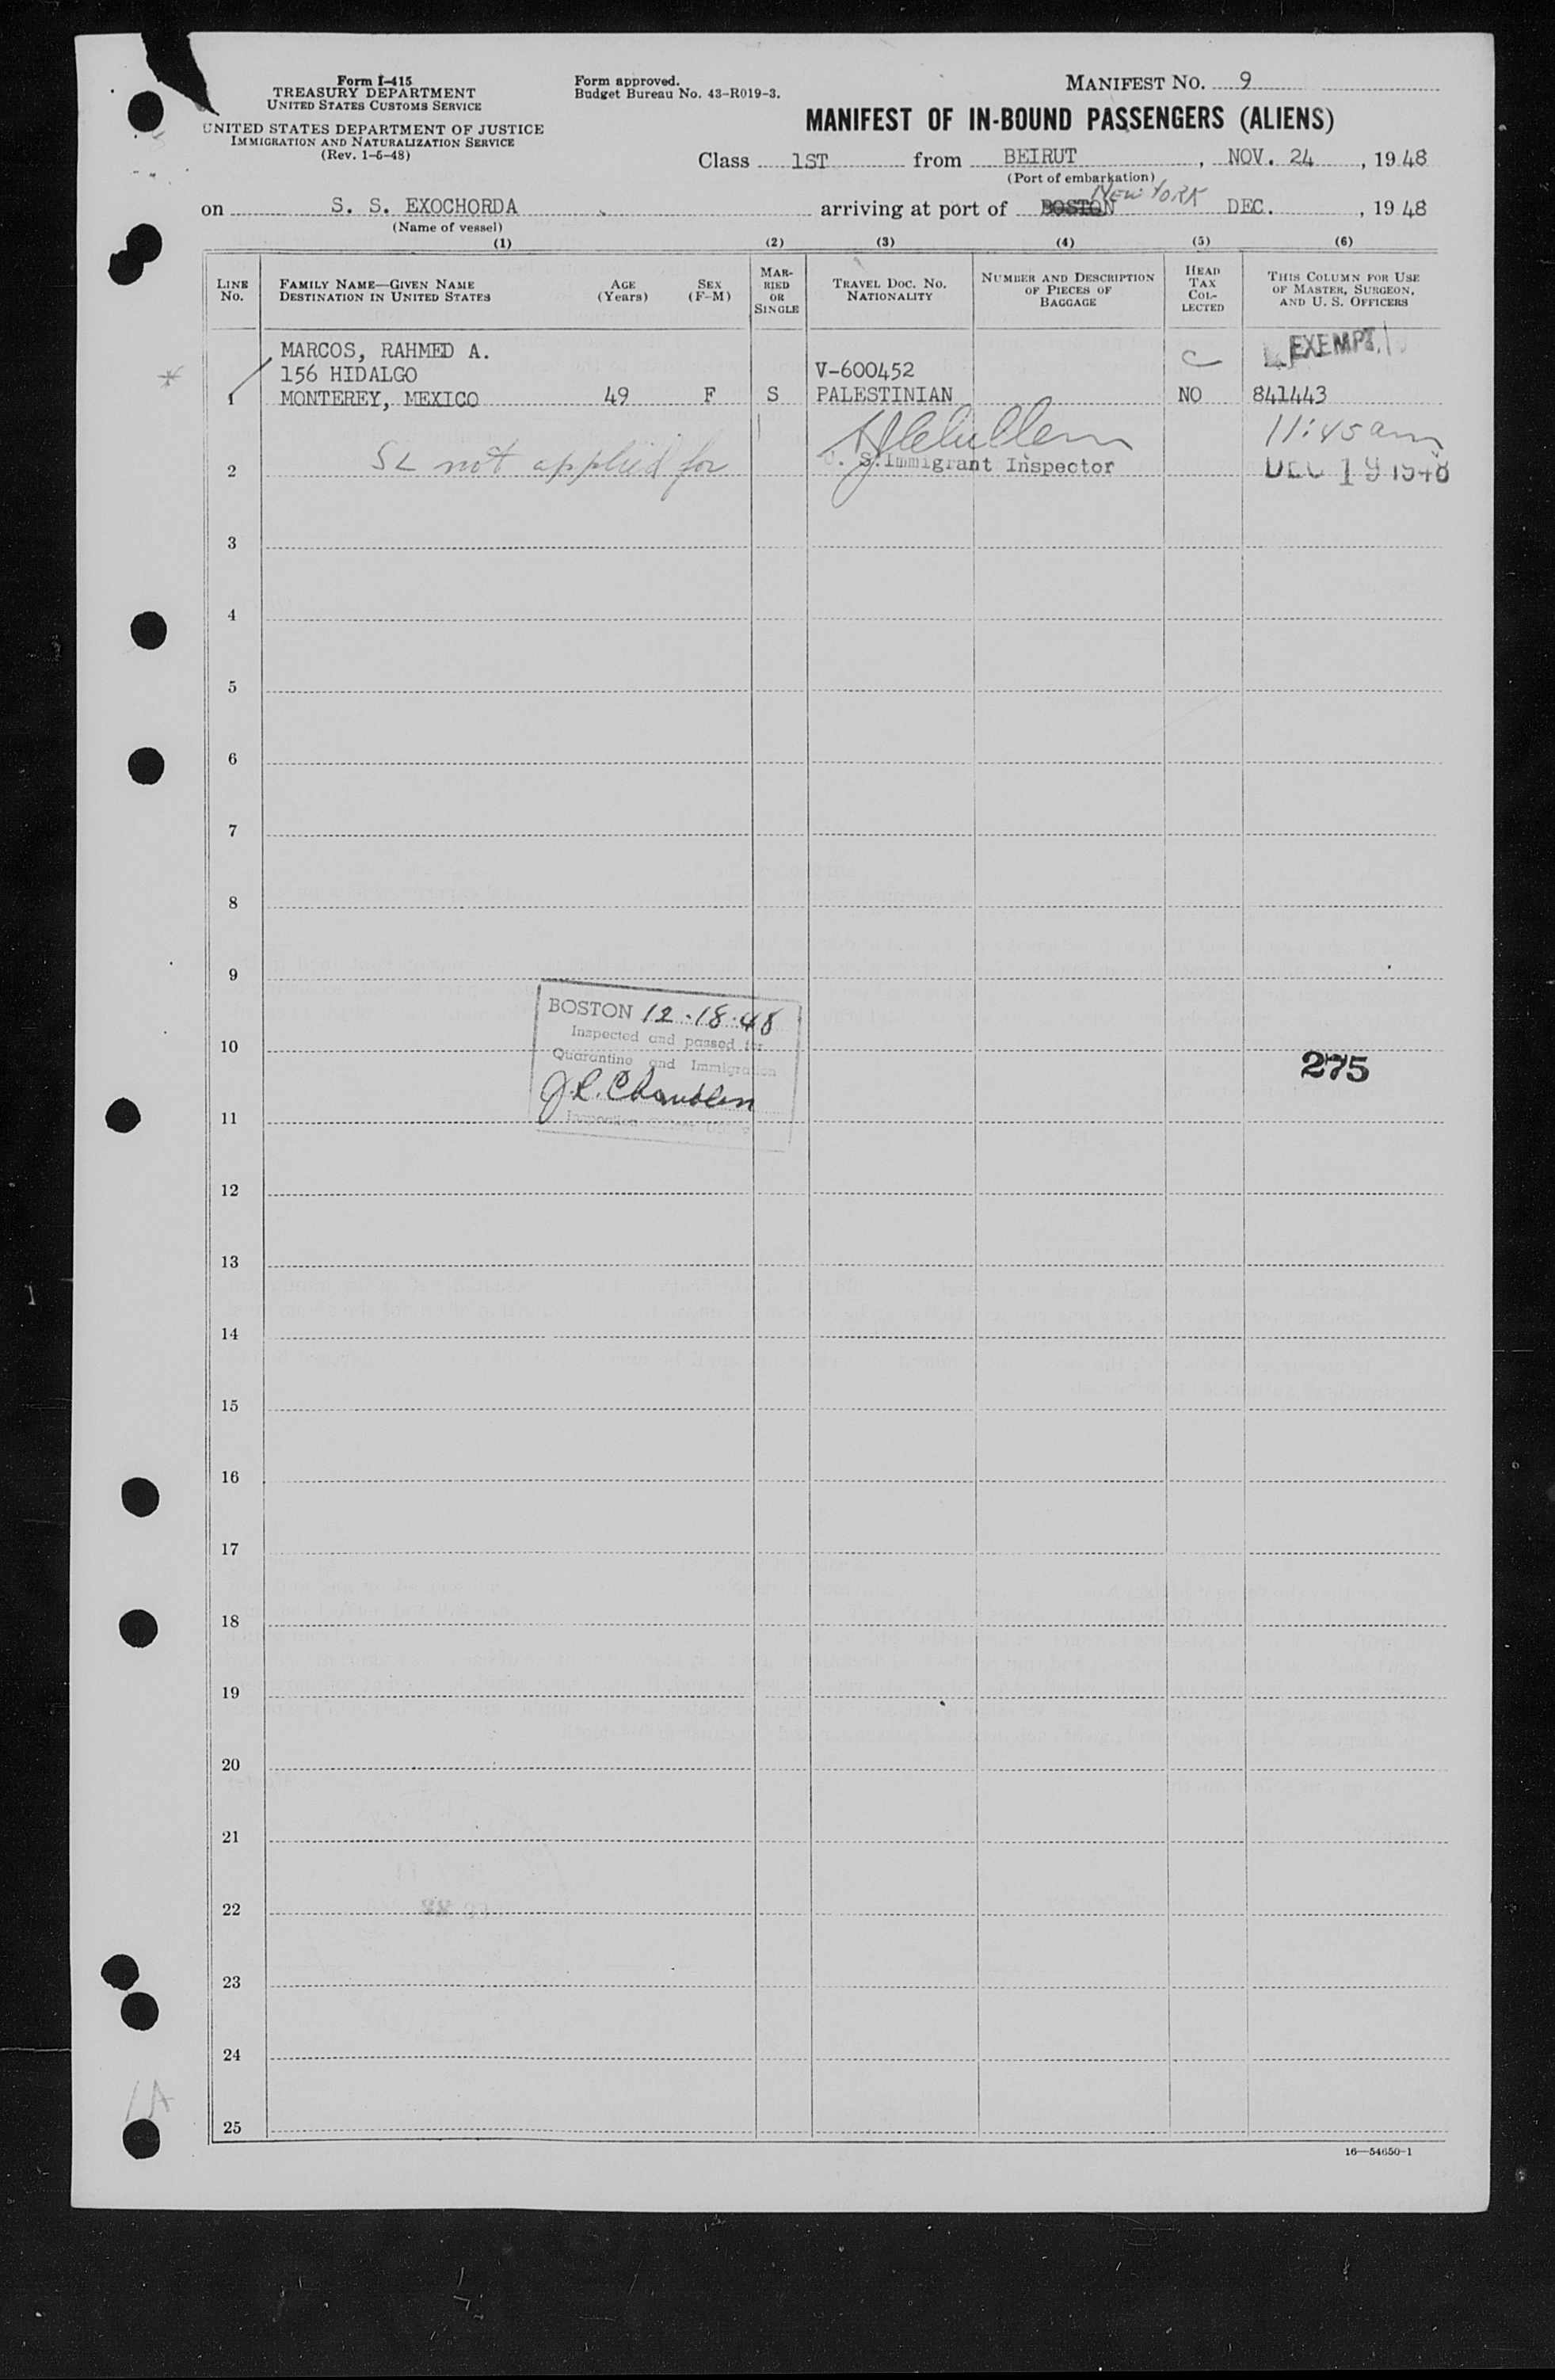 Form I-415
TREASURY DEPARTMENT
UNITED STATES CUSTOMS SERVICE
UNITED STATES DEPARTMENT OF JUSTICE
IMMIGRATION AND NATURALIZATION SERVICE
(Rev. 1-6-48)
Form approved.
Budget Bureau No. 43-R019-3.
MANIFEST NO. 9
MANIFEST OF IN-BOUND PASSENGERS (ALIENS)
Class 1ST from BEIRUT, NOV. 24, 1948
(Port of embarkation)
New York
on S. S. EXOCHORDA arriving at port of BOSTON DEC., 1948
(Name of vessel)
(1) (2) (3) (4) (5) (6)
LINE No. FAMILY NAME—GIVEN NAME DESTINATION IN UNITED STATES AGE (Years) SEX (F-M) MARRIED OR SINGLE TRAVEL DOC. NO. NATIONALITY NUMBER AND DESCRIPTION OF PIECES OF BAGGAGE HEAD TAX COLLECTED THIS COLUMN FOR USE OF MASTER, SURGEON, AND U. S. OFFICERS
MARCOS, RAHMED A. EXEMPT.
156 HIDALGO V-600452
1 MONTEREY, MEXICO 49 F S PALESTINIAN NO 841443
11:45 am
2 SL not applied for S. Immigrant Inspector DEC 19 1948
3
4
5
6
7
8
9
BOSTON 12-18-48
Inspected and passed for
10
Quarantine and Immigration
275
J.R. Chandler
11
12
13
14
15
16
17
18
19
20
21
22
23
24
1A
25
16—54650-1